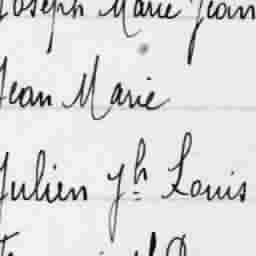 Joseph Marie Jean
Jean Marie
Julien Jh Louis